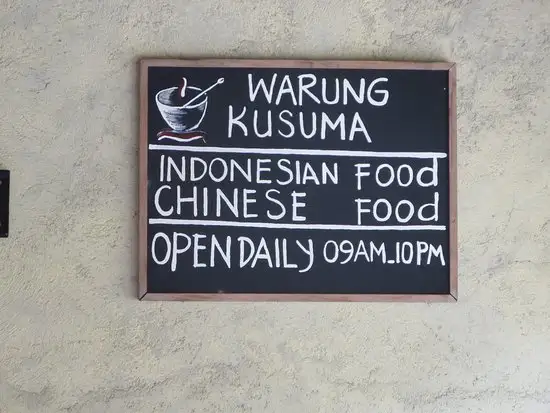 WARUNG
KUSUMA
INDONESIAN FOOd
CHINESE FOOd
OPEN DAILY 09AM_10PM